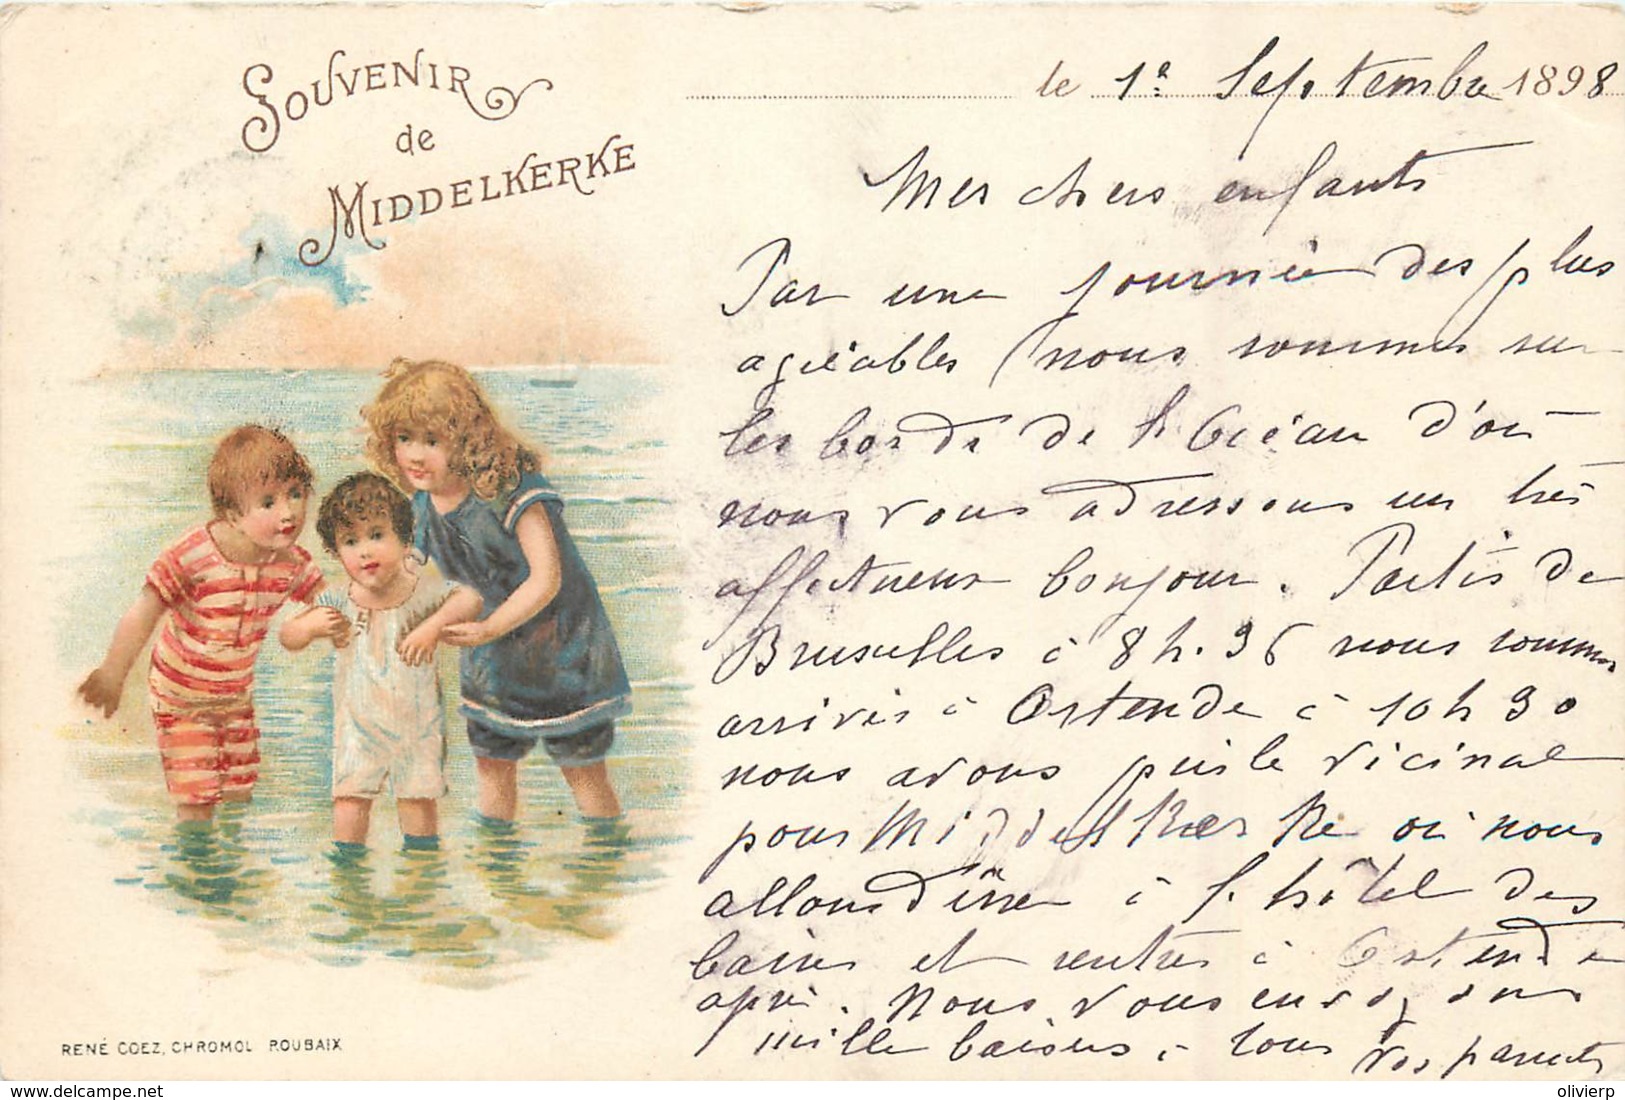 SOUVENIR
de
MIDDELKERKE
le 1e Septembre 1898
Mes chers enfants
Par une journée des plus
agréables nous sommes sur
les bords de l'Océan d'où
nous vous adressons un très
affectueux bonjour. Partis de
Bruxelles à 8h.36 nous sommes
arrivés à Ostende à 10h30
nous avons pris le vicinal
pour Middelkerke où nous
allons dîner à l'hôtel des
bains et rentrés à Ostende
après. Nous vous envoyons
mille baisers à tous vos parents
RENÉ COEZ, CHROMOL ROUBAIX
delcampe.net
olivierp